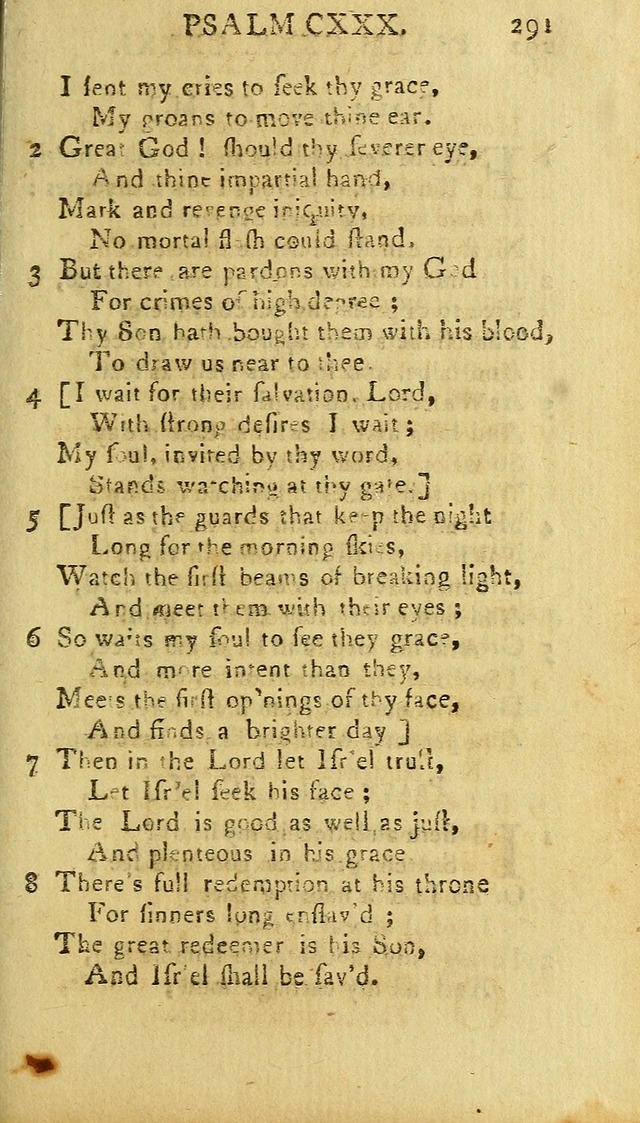 PSALM CXXX. 291
I ſent my cries to ſeek thy grace,
My groans to move thine ear.
2 Great God ! ſhould thy ſeverer eye,
And thine impartial hand,
Mark and revenge iniquity,
No mortal fleſh could ſtand.
3 But there are pardons with my God
For crimes of high degree ;
Thy Son hath bought them with his blood,
To draw us near to thee.
4 [I wait for their ſalvation, Lord,
With ſtrong deſires I wait ;
My ſoul, invited by thy word,
Stands watching at thy gate.]
5 [Juſt as the guards that keep the night
Long for the morning ſkies,
Watch the firſt beams of breaking light,
And meet them with their eyes ;
6 So waits my ſoul to ſee they grace,
And more intent than they,
Meets the firſt op'nings of thy face,
And finds a brighter day ]
7 Then in the Lord let Iſr'el truſt,
Let Iſr'el ſeek his face ;
The Lord is good as well as juſt,
And plenteous in his grace
8 There's full redemption at his throne
For ſinners long enſlav'd ;
The great redeemer is his Son,
And Iſr'el ſhall be ſav'd.